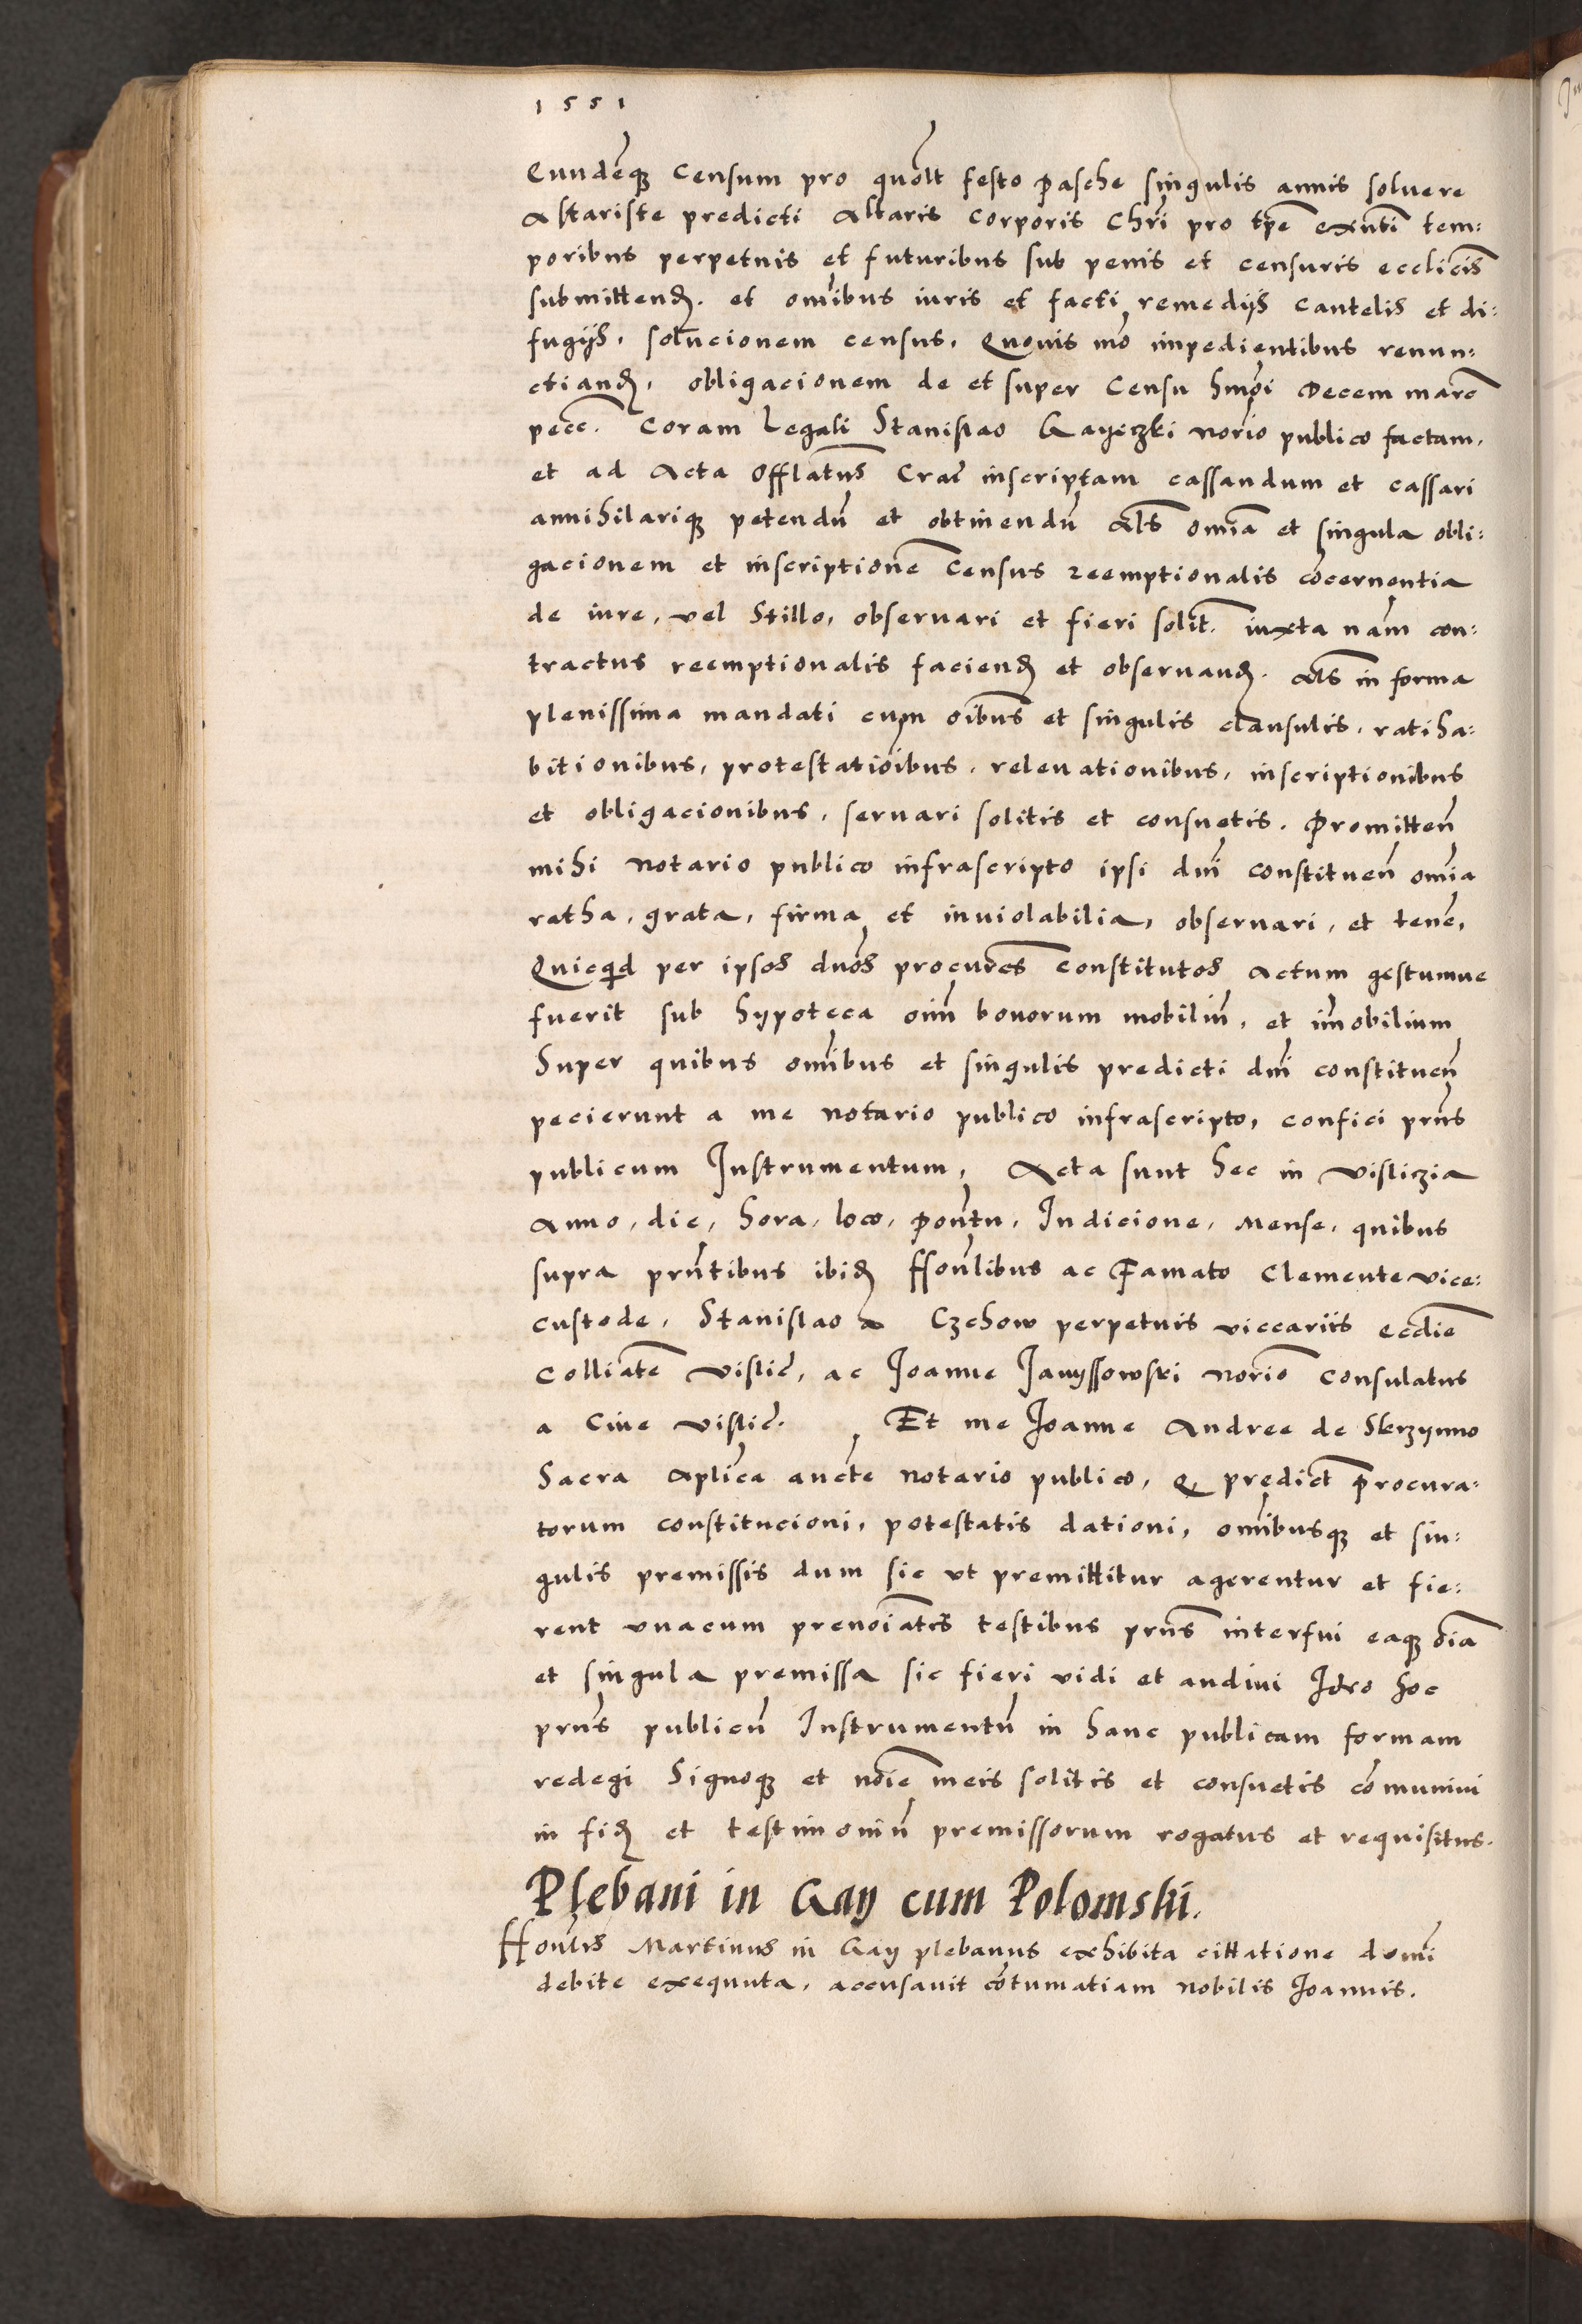 1551
Eundẽqȝ Censum pro quolt̃ festo Pasche singulis annis soluere
Altariste predicti Altaris Corporis Chr̃i pro tp̃e exñti tem:
poribus perpetuis et futuribus sub penis et censuris eccl̃icis
submittenð. et om̃ibus iuris et facti remedijs cautelis et di:
fugijs, solucionem census, Quouis mõ impedientibus renun:
ctianð, obligacionem de et super Censu hm̃õi Decem marc̃
pecc̃. Coram Legali Stanislao Gayeczki nor̃io publico factam,
et ad Acta Offlatus̃ Crac̃ inscriptam cassandum et cassari
annihilariqȝ petendũ et obtinendũ al̃s om̃ia et singula obli:
gacionem et inscriptionẽ Census reemptionalis cõcernentia
de iure, vel Stillo, obseruari et fieri solit̃. iuxta nãm con:
tractus reemptionalis faciendȝ et obseruandȝ. al̃s in forma
plenissima mandati cum oĩbus et singulis clausulis, ratiha:
bitionibus, protestatiõibus, releuationibus, inscriptionibus
et obligacionibus, seruari solitis et consuetis. Promitteñ
mihi Notario publico infrascripto ipsi dñi constitueñ om̃ia
ratha, grata, firma et inuiolabilia, obseruari, et tenẽ,
Quicqid per ipsos dños procurẽs constitutos actum gestumue
fuerit sub hypoteca oĩm bonorum mobiliũ, et im̃obilium
Super quibus om̃ibus et singulis predicti dñi constitueñ
pecierunt a me notario publico infrascripto, confici prñs
publicum Instrumentum, Acta sunt hec in Visliczia
Anno, die, hora, loco, Pontũ, Indicione, Mense, quibus
supra prñtibus ibidȝ Hoñlibus ac Famato Clemente vice:
custode, Stanislao a Czchow perpetuis viccariis eccl̃ie
Colliatẽ Vislic̃, ac Joanne Janyssowski nor̃io Consulatus
a Ciue Vislic̃. Et me Joanne Andree de Skrzynno
Sacra Apl̃ica aucte notario publico, Q predict̃ Procura:
torum constitucioni, potestatis dationi, om̃ibusqȝ et sin:
gulis premissis dum sic vt premittitur agerentur et fie:
rent vnacum prenoĩatis testibus prñs interfui eaqȝ oĩa
et singula premissa sic fieri vidi et audiui Idro hoc
prñs publicũ Instrumentũ in hanc publicam formam
redegi Signoqȝ et noĩe meis solitis et consuetis cõmuniui
in fidȝ et testimoniũ premissorum rogatus et requisitus.
Plebani in Gay cum Polomski.
Hoñlis Martinus in Gay plebanus exhibita cittatione domi
debite exequuta, accusauit cõtumatiam Nobilis Joannis.